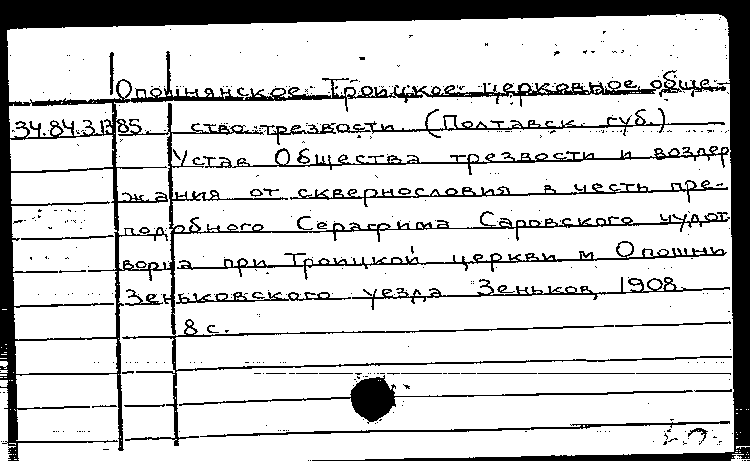 Опошнянское Троицкое церковное обще-
34.84.3.1385. ство трезвости (Полтавск. губ.)
Устав Общества трезвости и воздер
жания от сквернословия в честь пре-
подобного Серафима Саровского чудот
ворца при Троицкой церкви м Опошни
Зеньковского уезда Зеньков, 1908.
8 с.